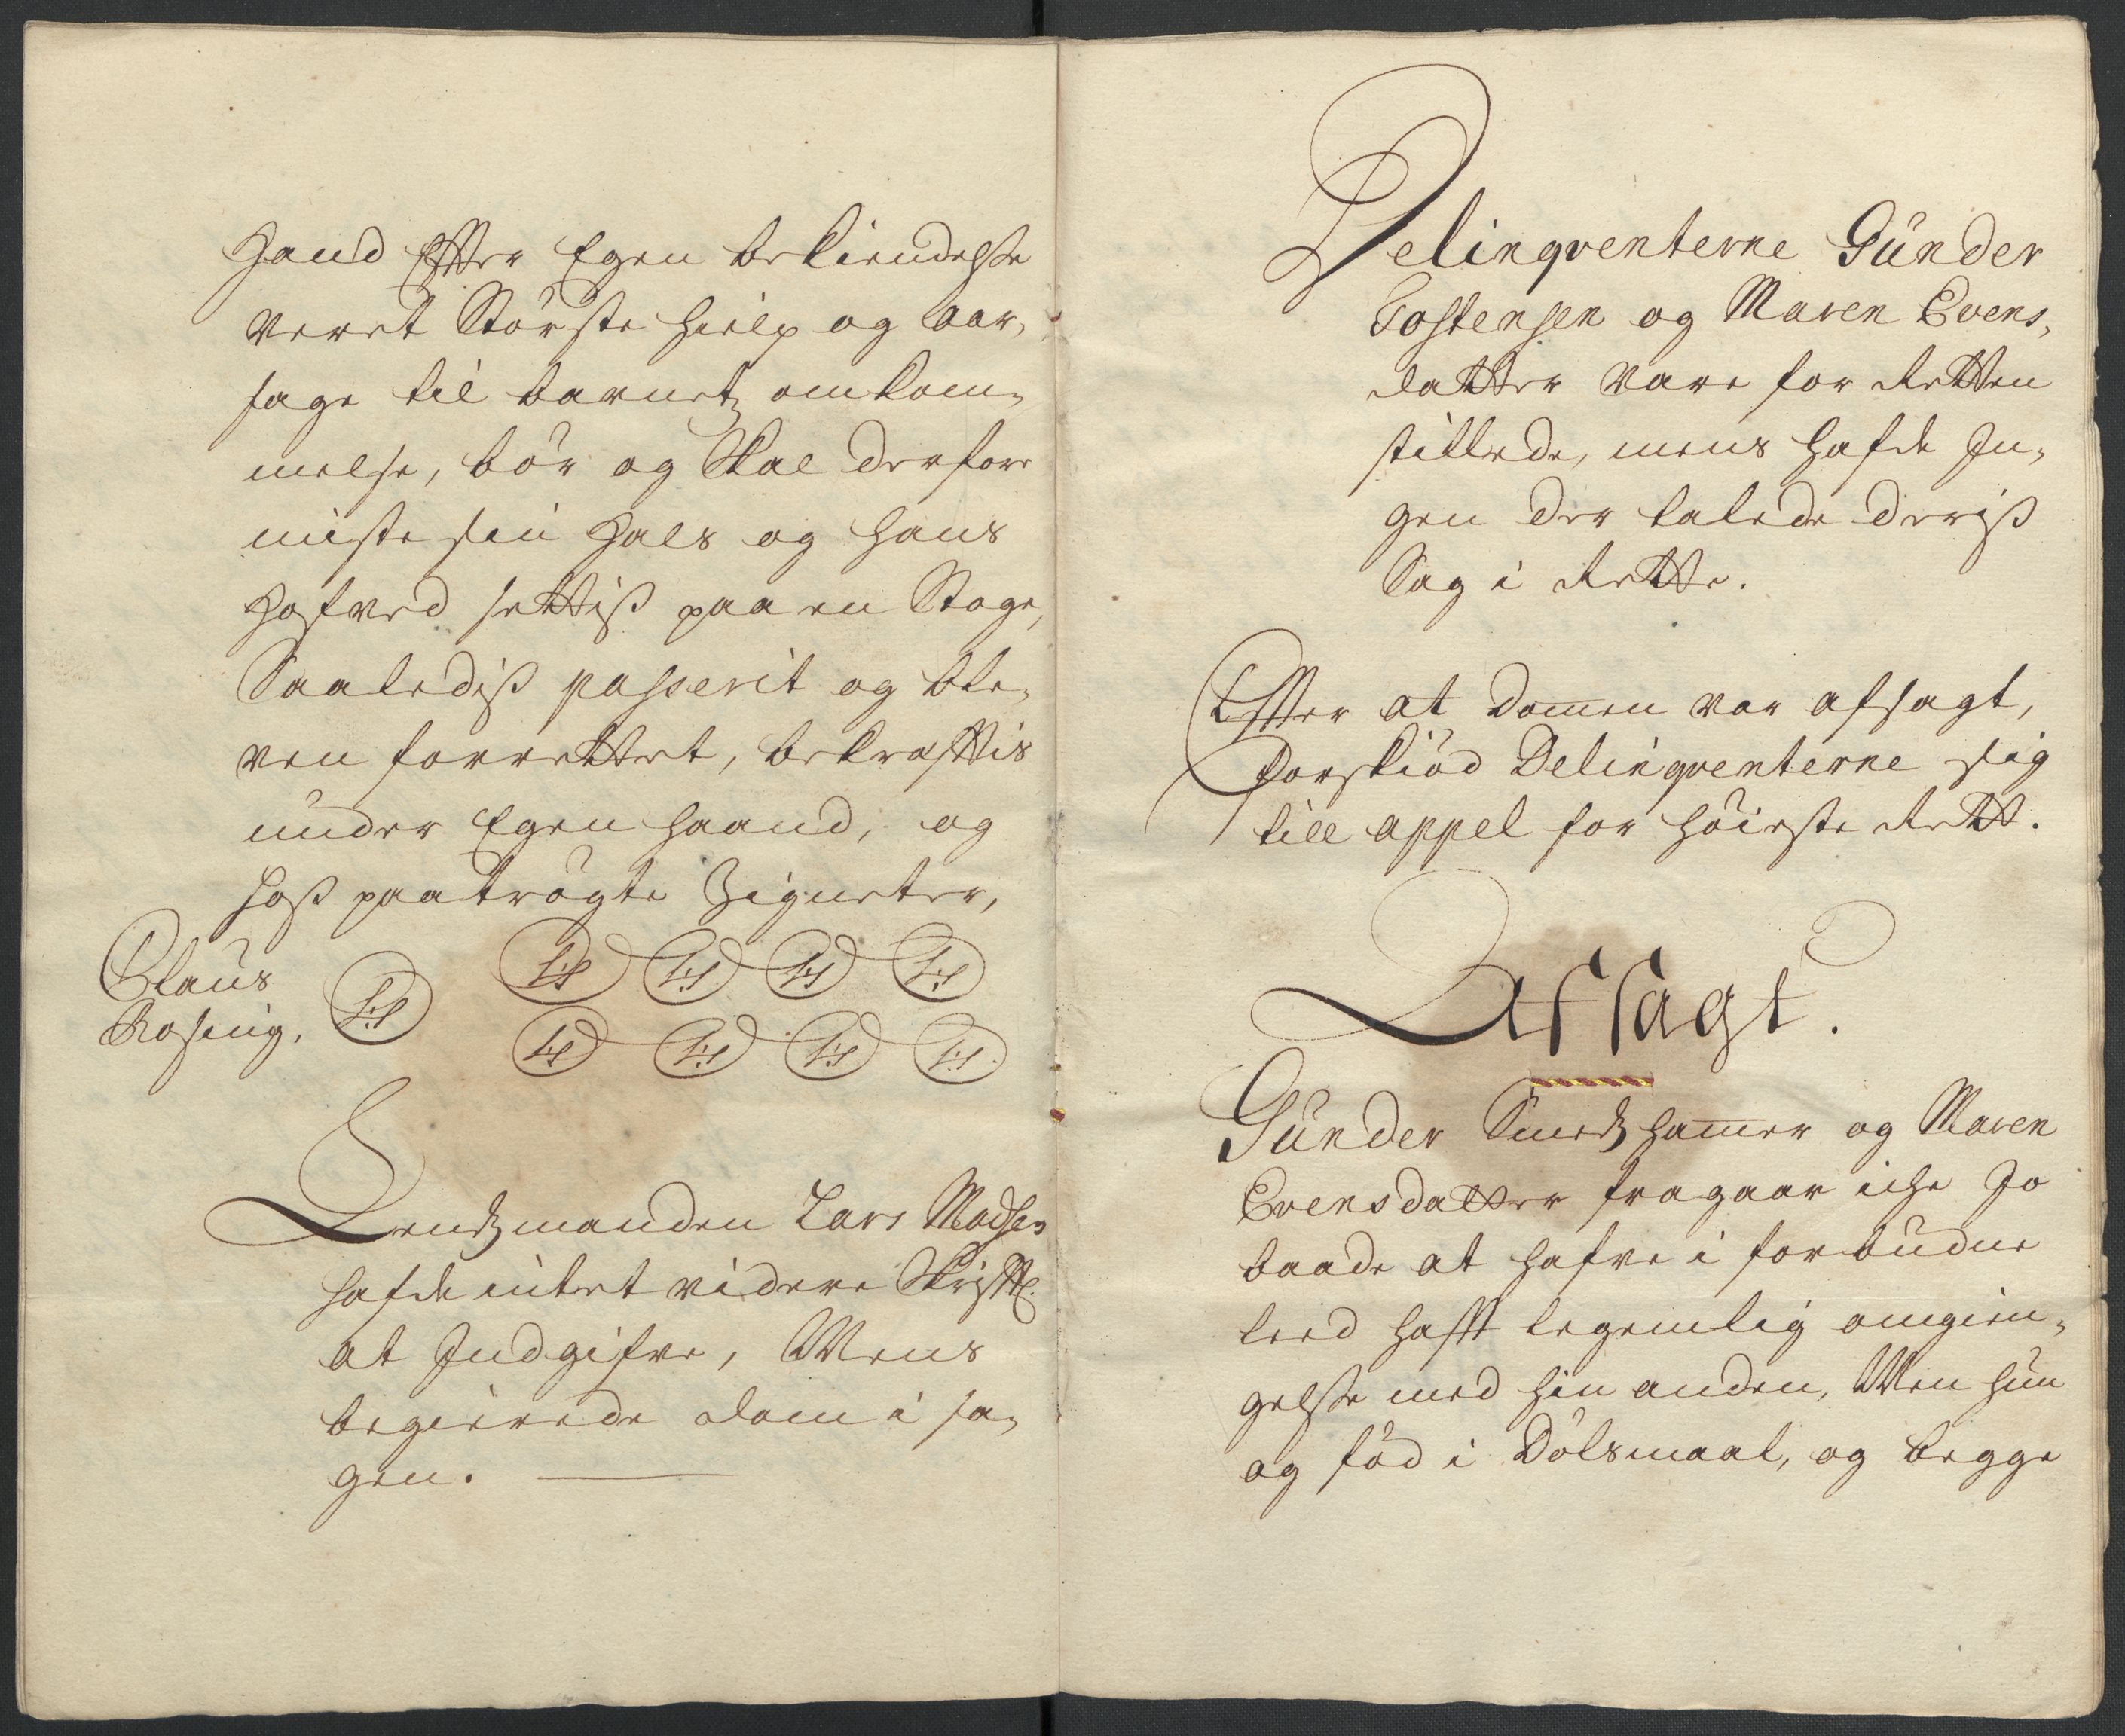 Hand Effter Egen bekiendelsse
veret Störste hielp og Aar,
sage til barnetz omkom,
melse, bör og Skal derfore
miste sin Hals og hans
Hofved settiß paa en Stage,
Saaledeß passerit og ble,
ven forrettet, bekrefftis
under Egen haand, og
hoß paatrögte Zigneter,
Claus
Rosing.
LS LS LS LS LS
LS LS LS LS
Lendzmanden Lars Madsen
hafde intet videre Skrifftl:
at Indgifve, Mens
begierede dom i sa,
gen.
Delinqventerne Gunder
Tostensen og Maren Evens,
datter vare for Retten
stillede, mens hafde In,
gen der talede deriß
Sag i Rette.
Effter at Domen var afsagt,
forskiöd Delinqventerne sig
till appel for höieste Rett.
Afsagt.
Gunder Smedzhamer og Maren
Evensdatter fragaar iche Jo
baade at hafve i forbudne
leed hafft legemlig omgien,
gelsse med hin anden, Men hun
og föd i Dölsmaal, og begge